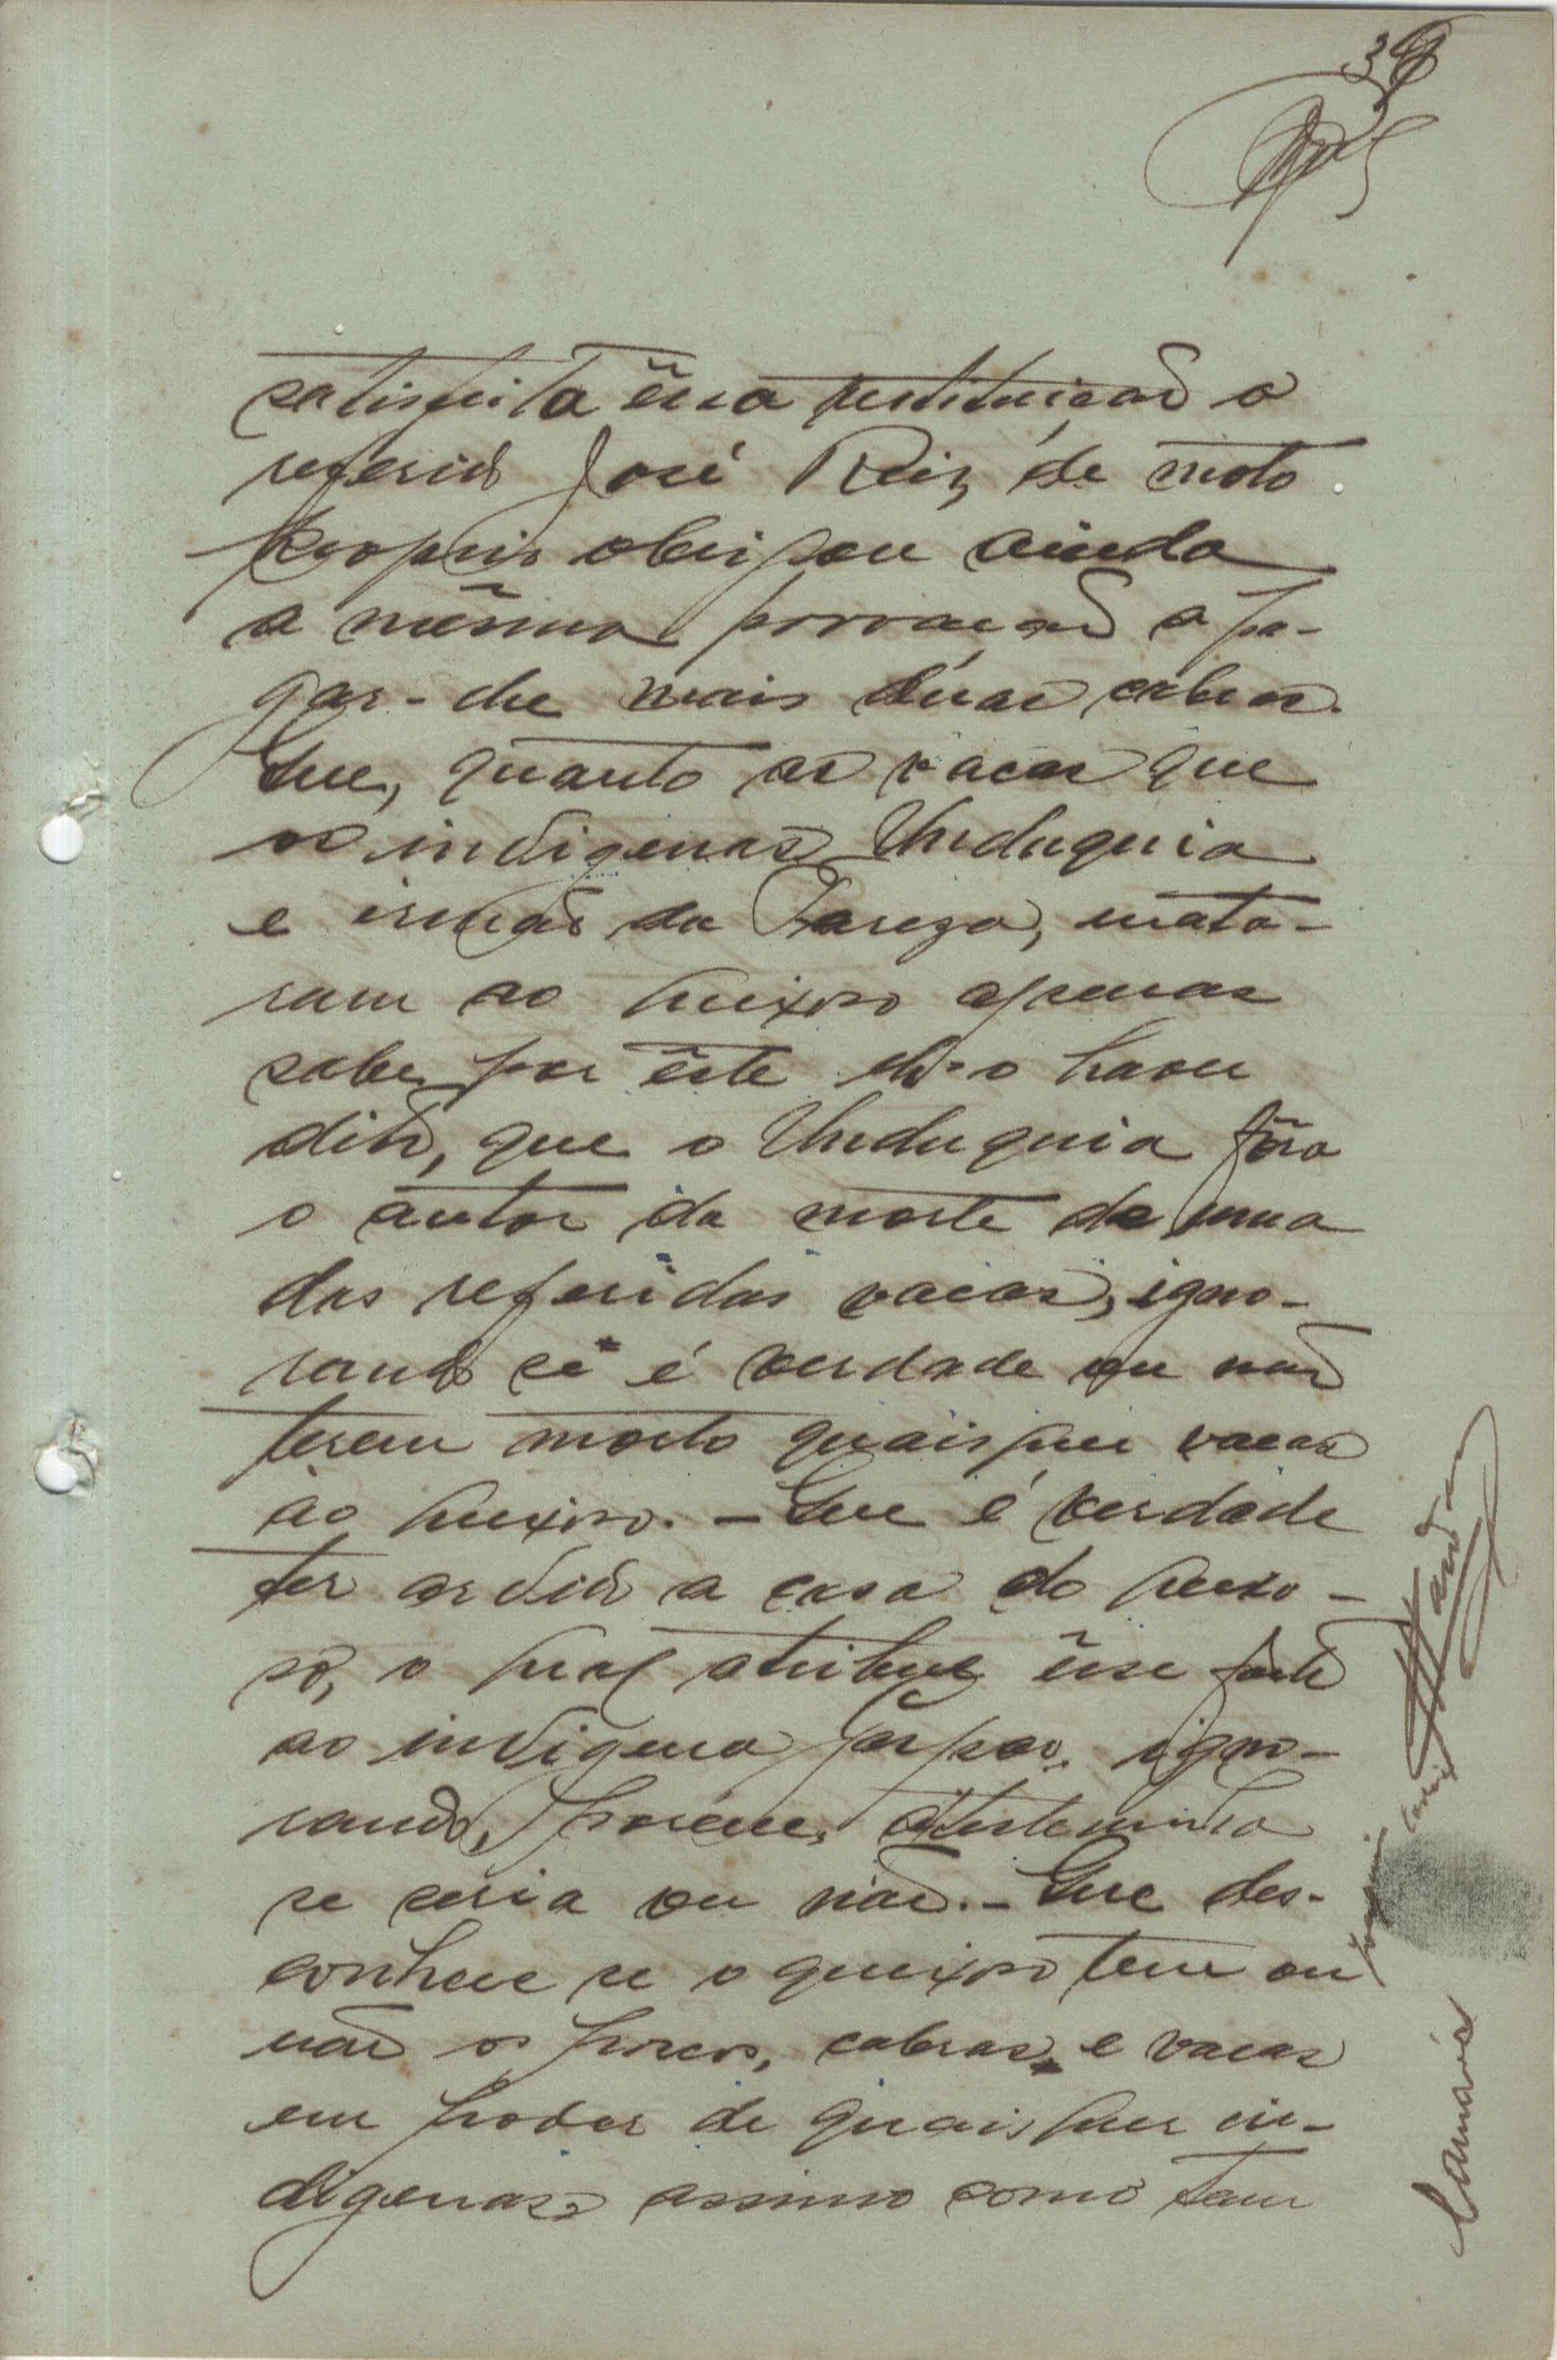 38
satisfeita êssa restituição o
referido José Reis, de moto
proprio obrigou ainda
a mêsma povoação a pa-
gar-lhe mais duas cabras.
Que, quanto as vacas que
os indigenas Unduquia
e irmão da Zareza, mata-
ram ao queixoso apenas
sabe por êste lh'o haver
dito, que o Unduquia fôra
o autor da morte de uma
das referidas vacas, igno-
rando se é verdade ou não
terem morto quaisquer vacas
ao queixoso. - Que é verdade
ter ardido a casa do queixo-
so, o qual atribue êsse facto
ao indigena igno-
rando, porém, a testemunha
se seria ou não. - Que des-
conhece se o queixoso tem ou
não os porcos, cabras, e vacas
em poder de quaisquer in-
digenas, assim como tam